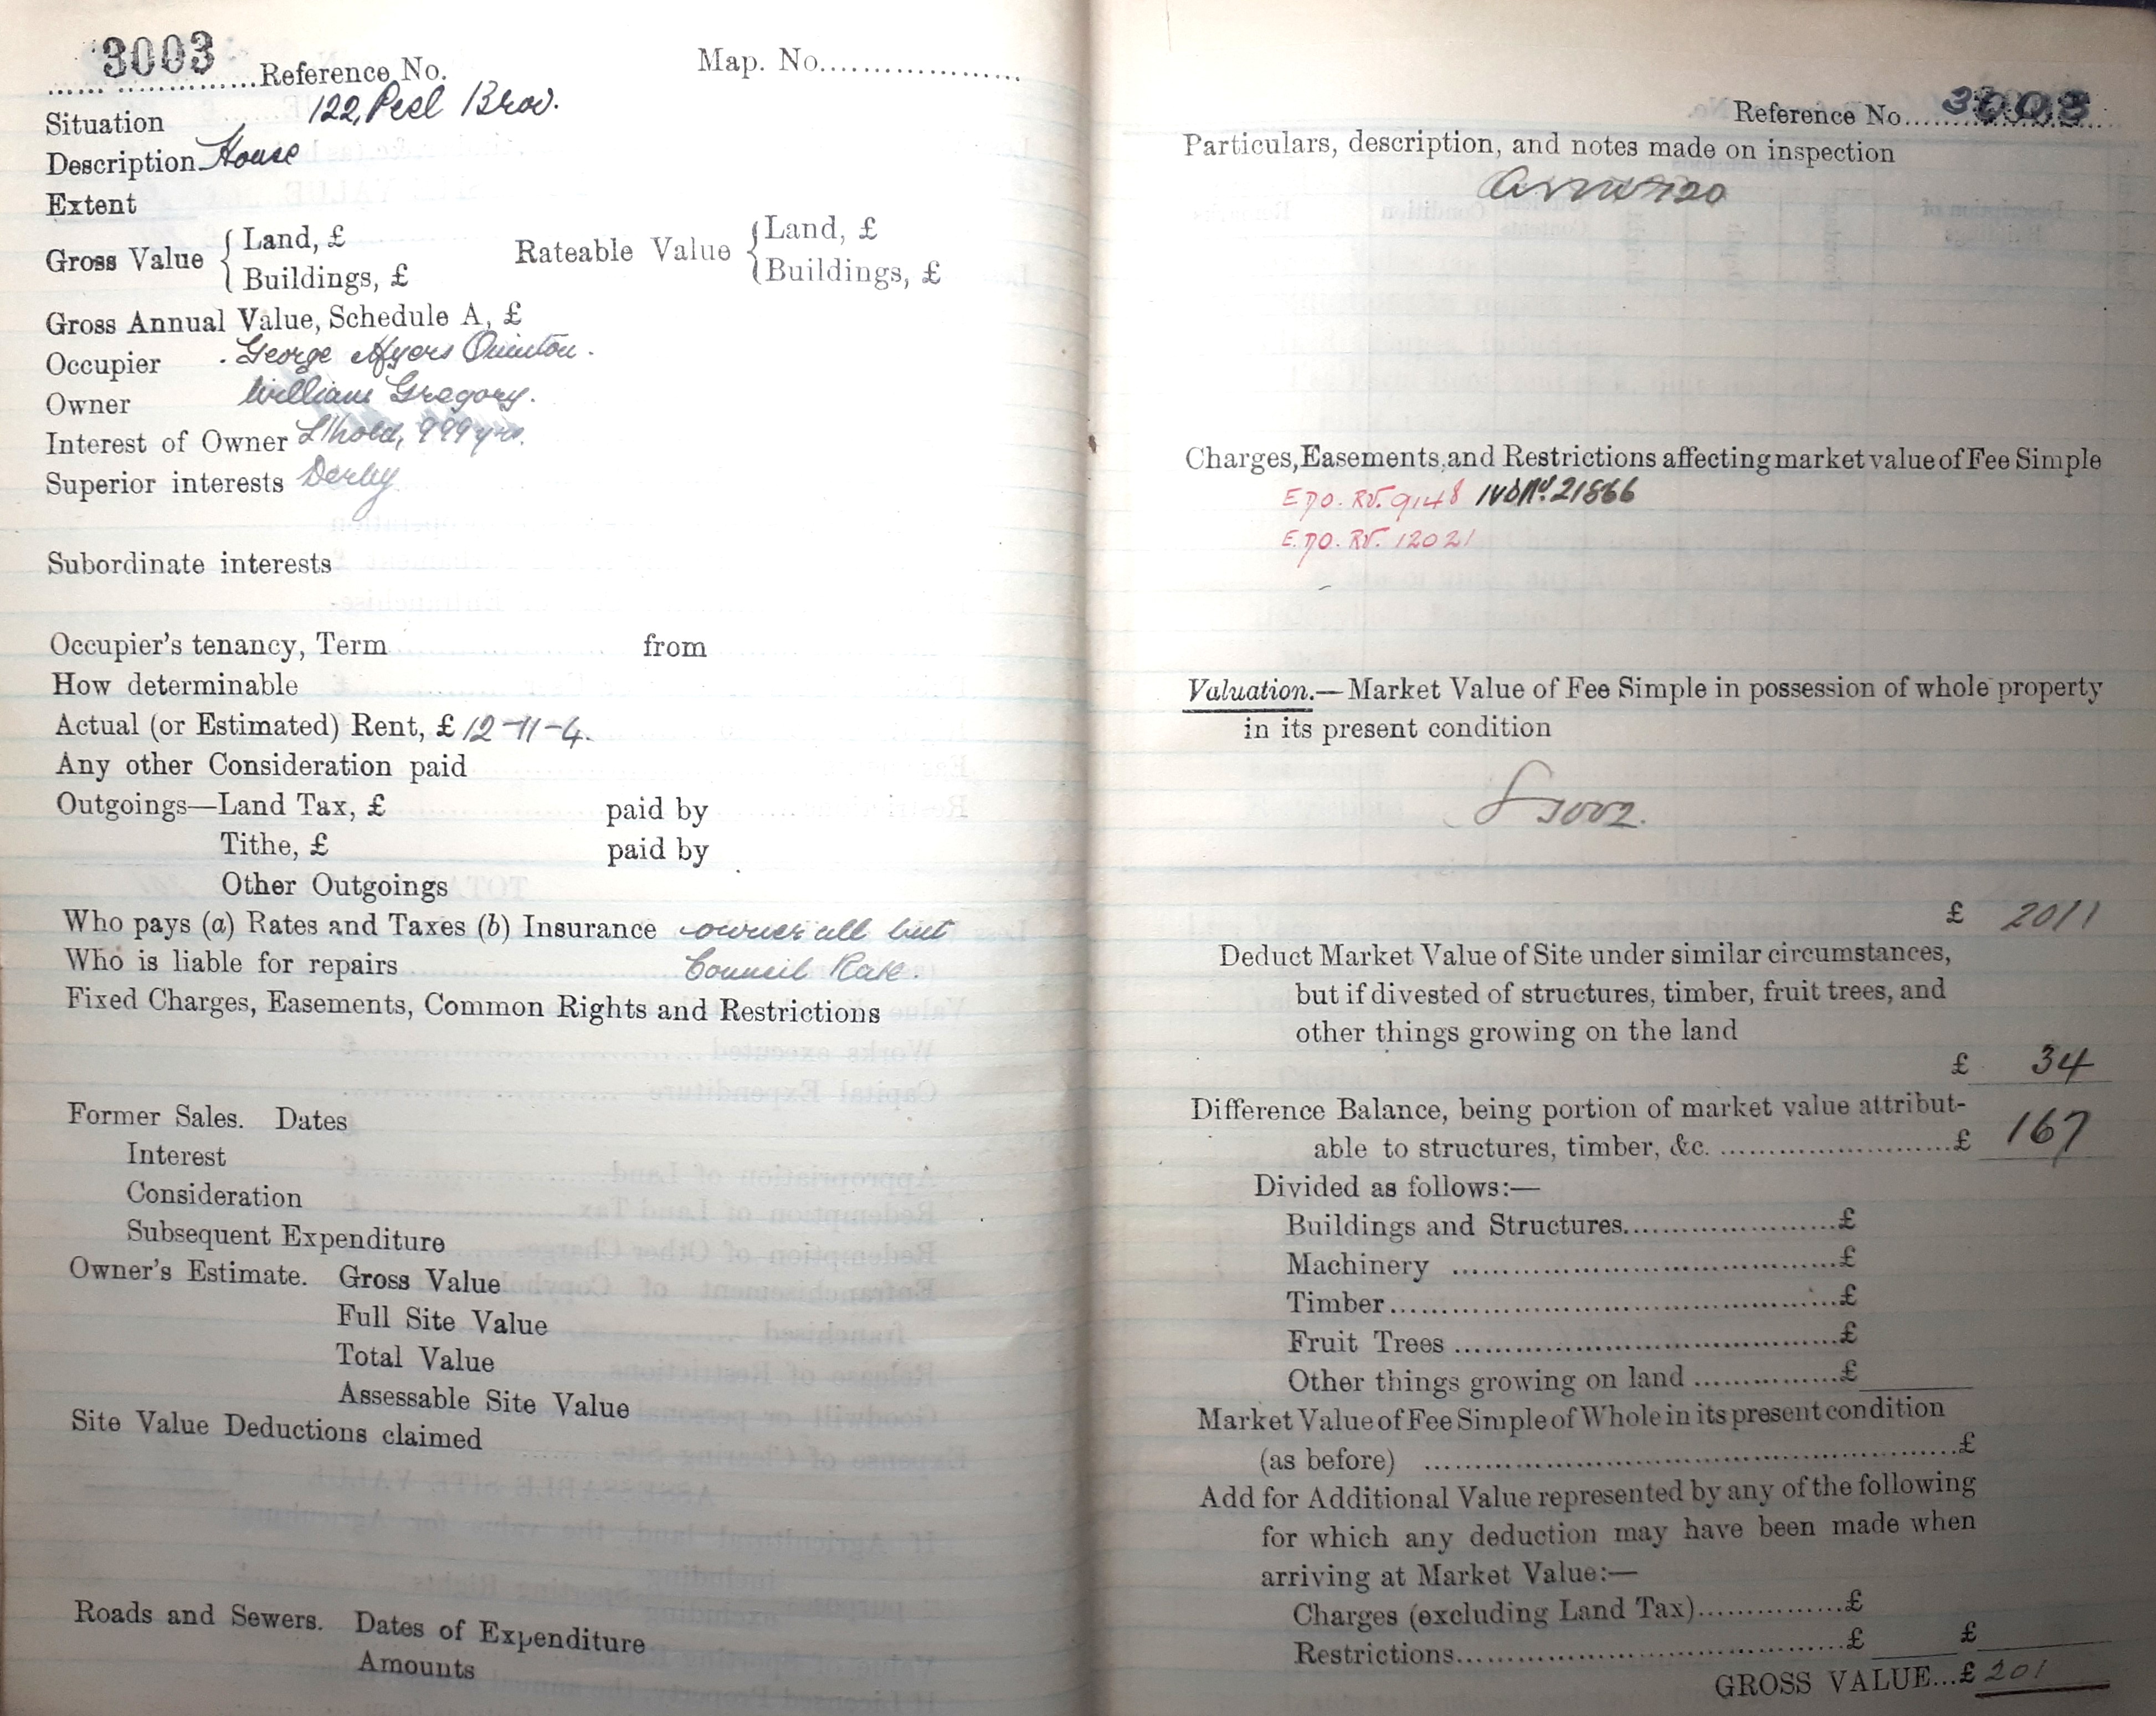 3003 Reference No. Map. No.
Situation 122, Peel Brow.
Description House
Extent
Gross Value { Land, £ Rateable Value { Land, £
Buildings, £ Buildings, £
Gross Annual Value, Schedule A, £
Occupier George Ayers Quinton.
Owner William Gregory.
Interest of Owner L'hold, 999 yrs.
Superior interests Derby
Subordinate interests
Occupier's tenancy, Term from
How determinable
Actual (or Estimated) Rent, £ 12-11-4.
Any other Consideration paid
Outgoings—Land Tax, £ paid by
Tithe, £ paid by
Other Outgoings
Who pays (a) Rates and Taxes (b) Insurance owner all but
Who is liable for repairs Council Rate.
Fixed Charges, Easements, Common Rights and Restrictions
Former Sales. Dates
Interest
Consideration
Subsequent Expenditure
Owner's Estimate. Gross Value
Full Site Value
Total Value
Assessable Site Value
Site Value Deductions claimed
Roads and Sewers. Dates of Expenditure
Amounts
Reference No. 3003
Particulars, description, and notes made on inspection
Charges, Easements, and Restrictions affecting market value of Fee Simple
9148 21566
12021
Valuation.—Market Value of Fee Simple in possession of whole property
in its present condition
£ 201
Deduct Market Value of Site under similar circumstances,
but if divested of structures, timber, fruit trees, and
other things growing on the land
£ 34
Difference Balance, being portion of market value attribut-
able to structures, timber, &c. £ 167
Divided as follows:—
Buildings and Structures £
Machinery £
Timber £
Fruit Trees £
Other things growing on land £
Market Value of Fee Simple of Whole in its present condition
(as before) £
Add for Additional Value represented by any of the following
for which any deduction may have been made when
arriving at Market Value:—
Charges (excluding Land Tax) £
Restrictions £ £
GROSS VALUE...£ 201